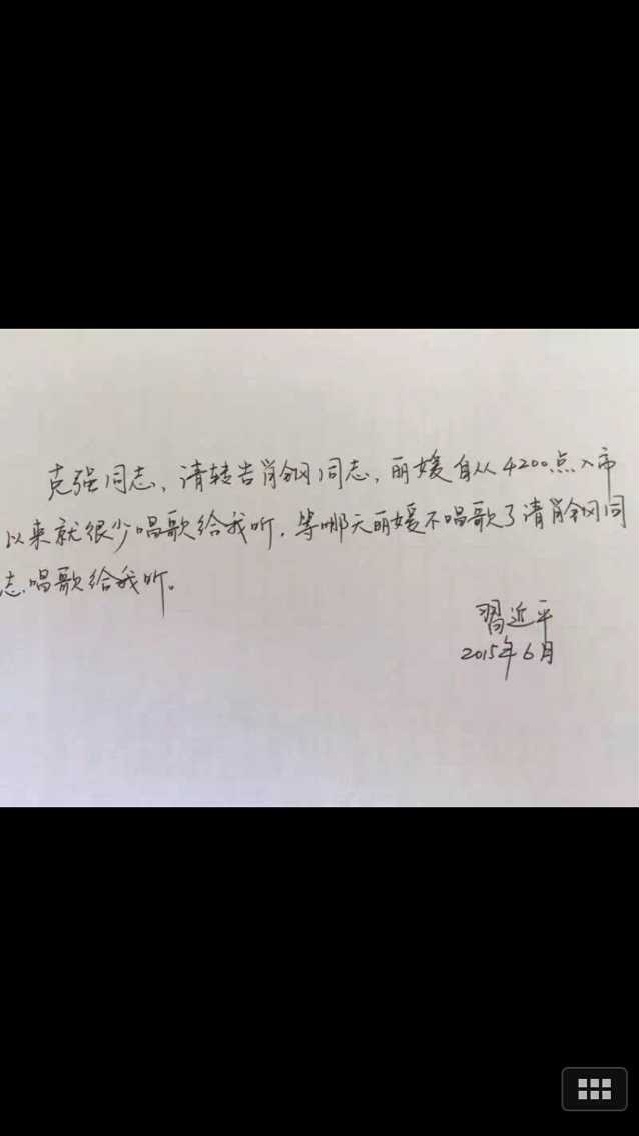 克强同志，请转告肖钢同志，丽媛自从4200点入市
以来就很少唱歌给我听，等哪天丽媛不唱歌了请肖钢同
志唱歌给我听。
習近平
2015年6月